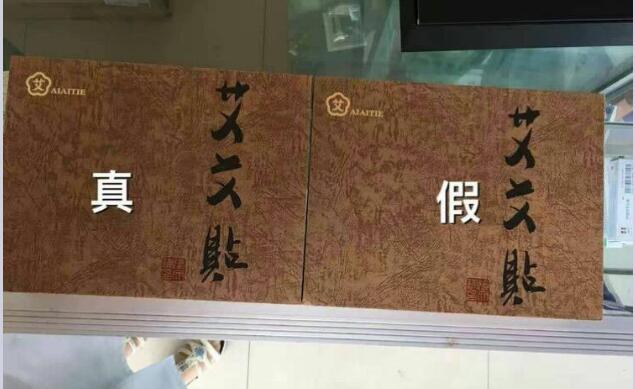 艾
AIAITIE
艾艾貼
真
艾
AIAITIE
艾艾貼
假